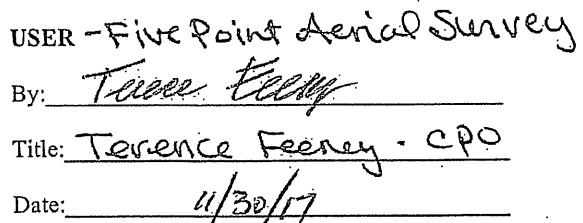 USER - Five Point Aerial Survey
By: Terence Feeney
Title: Terence Feeney - CPO
Date: 11/30/17